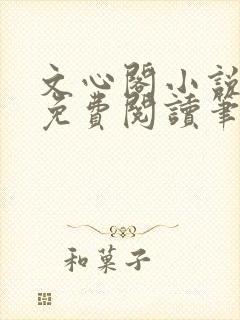 文心閣小說
免費閱讀筆
和菓子